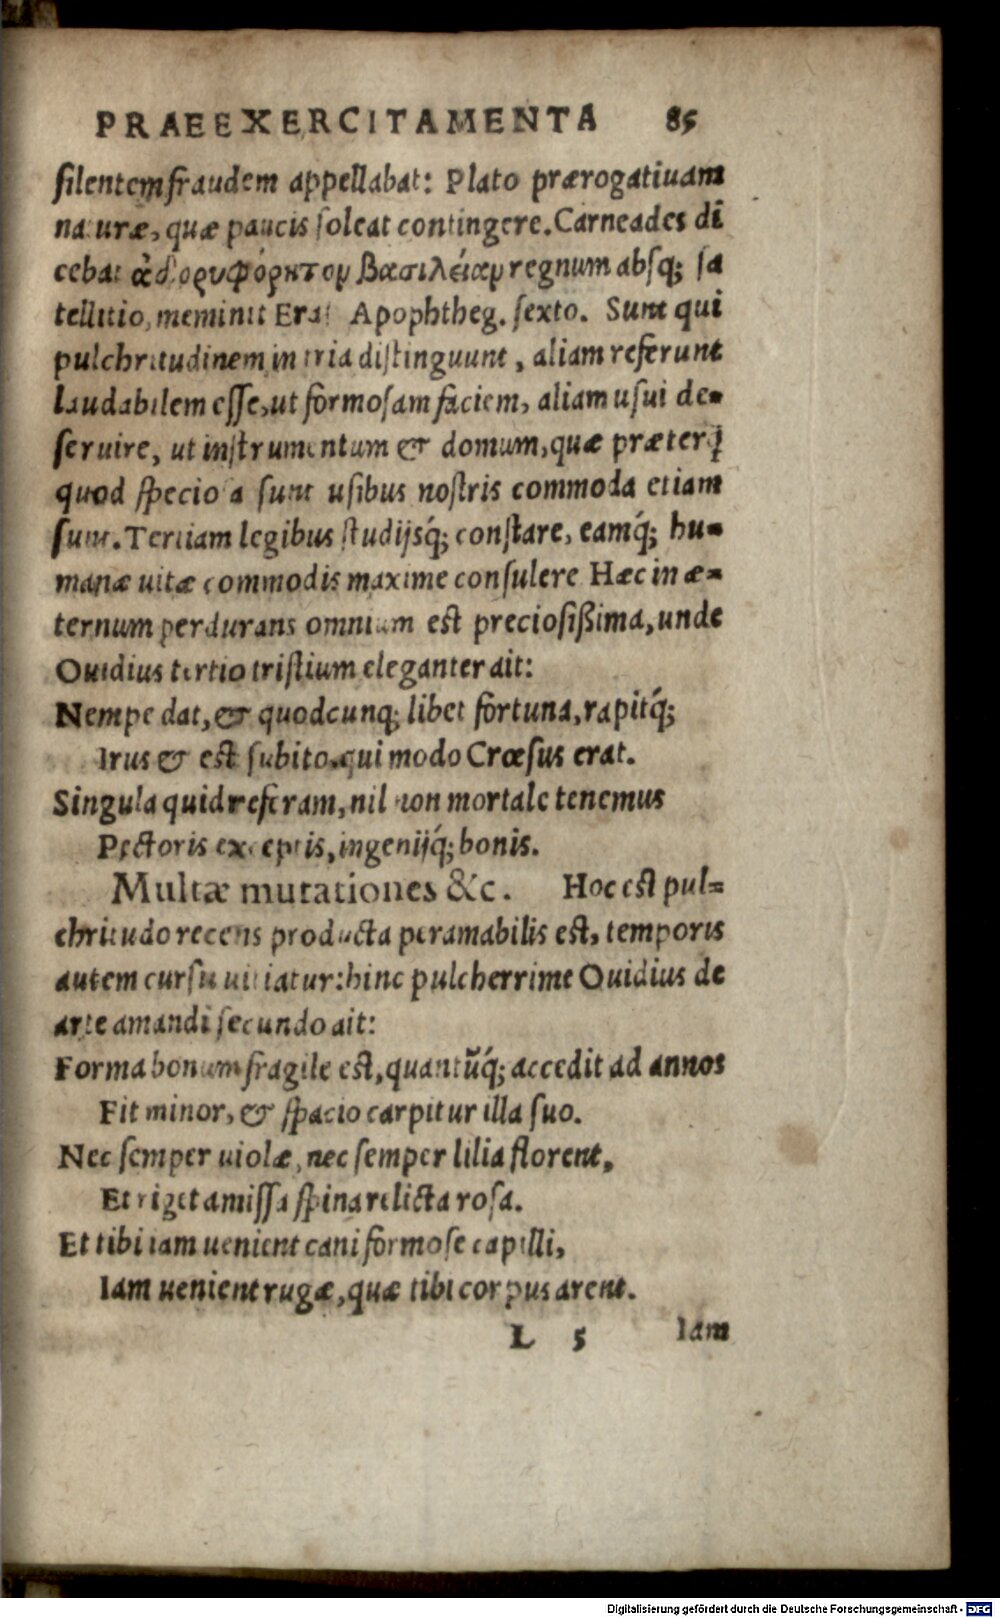 PRAEEXERCITAMENTA 85
silentem fraudem appellabat: Plato prærogatiuam
naturæ, quæ paucis soleat contingere. Carneades di
cebat ἀδορυφόρητον βασιλείαν regnum absq; sa
tellitio, meminit Eras Apophtheg. sexto. Sunt qui
pulchritudinem in tria distinguunt, aliam referunt
laudabilem esse, ut formosam faciem, aliam usui de-
seruire, ut instrumentum & domum, quæ præterq̃
quod speciosa sunt usibus nostris commoda etiam
sunt. Tertiam legibus studijsq́; constare, eamq́; hu-
manæ uitæ commodis maxime consulere Hæc in æ-
ternum perdurans omnium est preciosißima, unde
Ouidius tertio tristium eleganter ait:
Nempe dat, & quodcunq; libet fortuna, rapitq́;
Irus & est subito, qui modo Crœsus erat.
Singula quid referam, nil non mortale tenemus
Pectoris exceptis, ingenijq́; bonis.
Multæ mutationes &c. Hoc est pul-
chritudo recens producta peramabilis est, temporis
autem cursu uitiatur: hinc pulcherrime Ouidius de
arte amandi secundo ait:
Forma bonum fragile est, quantũq́; accedit ad annos
Fit minor, & spacio carpitur illa suo.
Nec semper uiolæ, nec semper lilia florent,
Et riget amissa spina relicta rosa.
Et tibi iam uenient cani formose capilli,
Iam uenient rugæ, quæ tibi corpus arent.
L 5 Iam
Digitalisierung gefördert durch die Deutsche Forschungsgemeinschaft - DFG